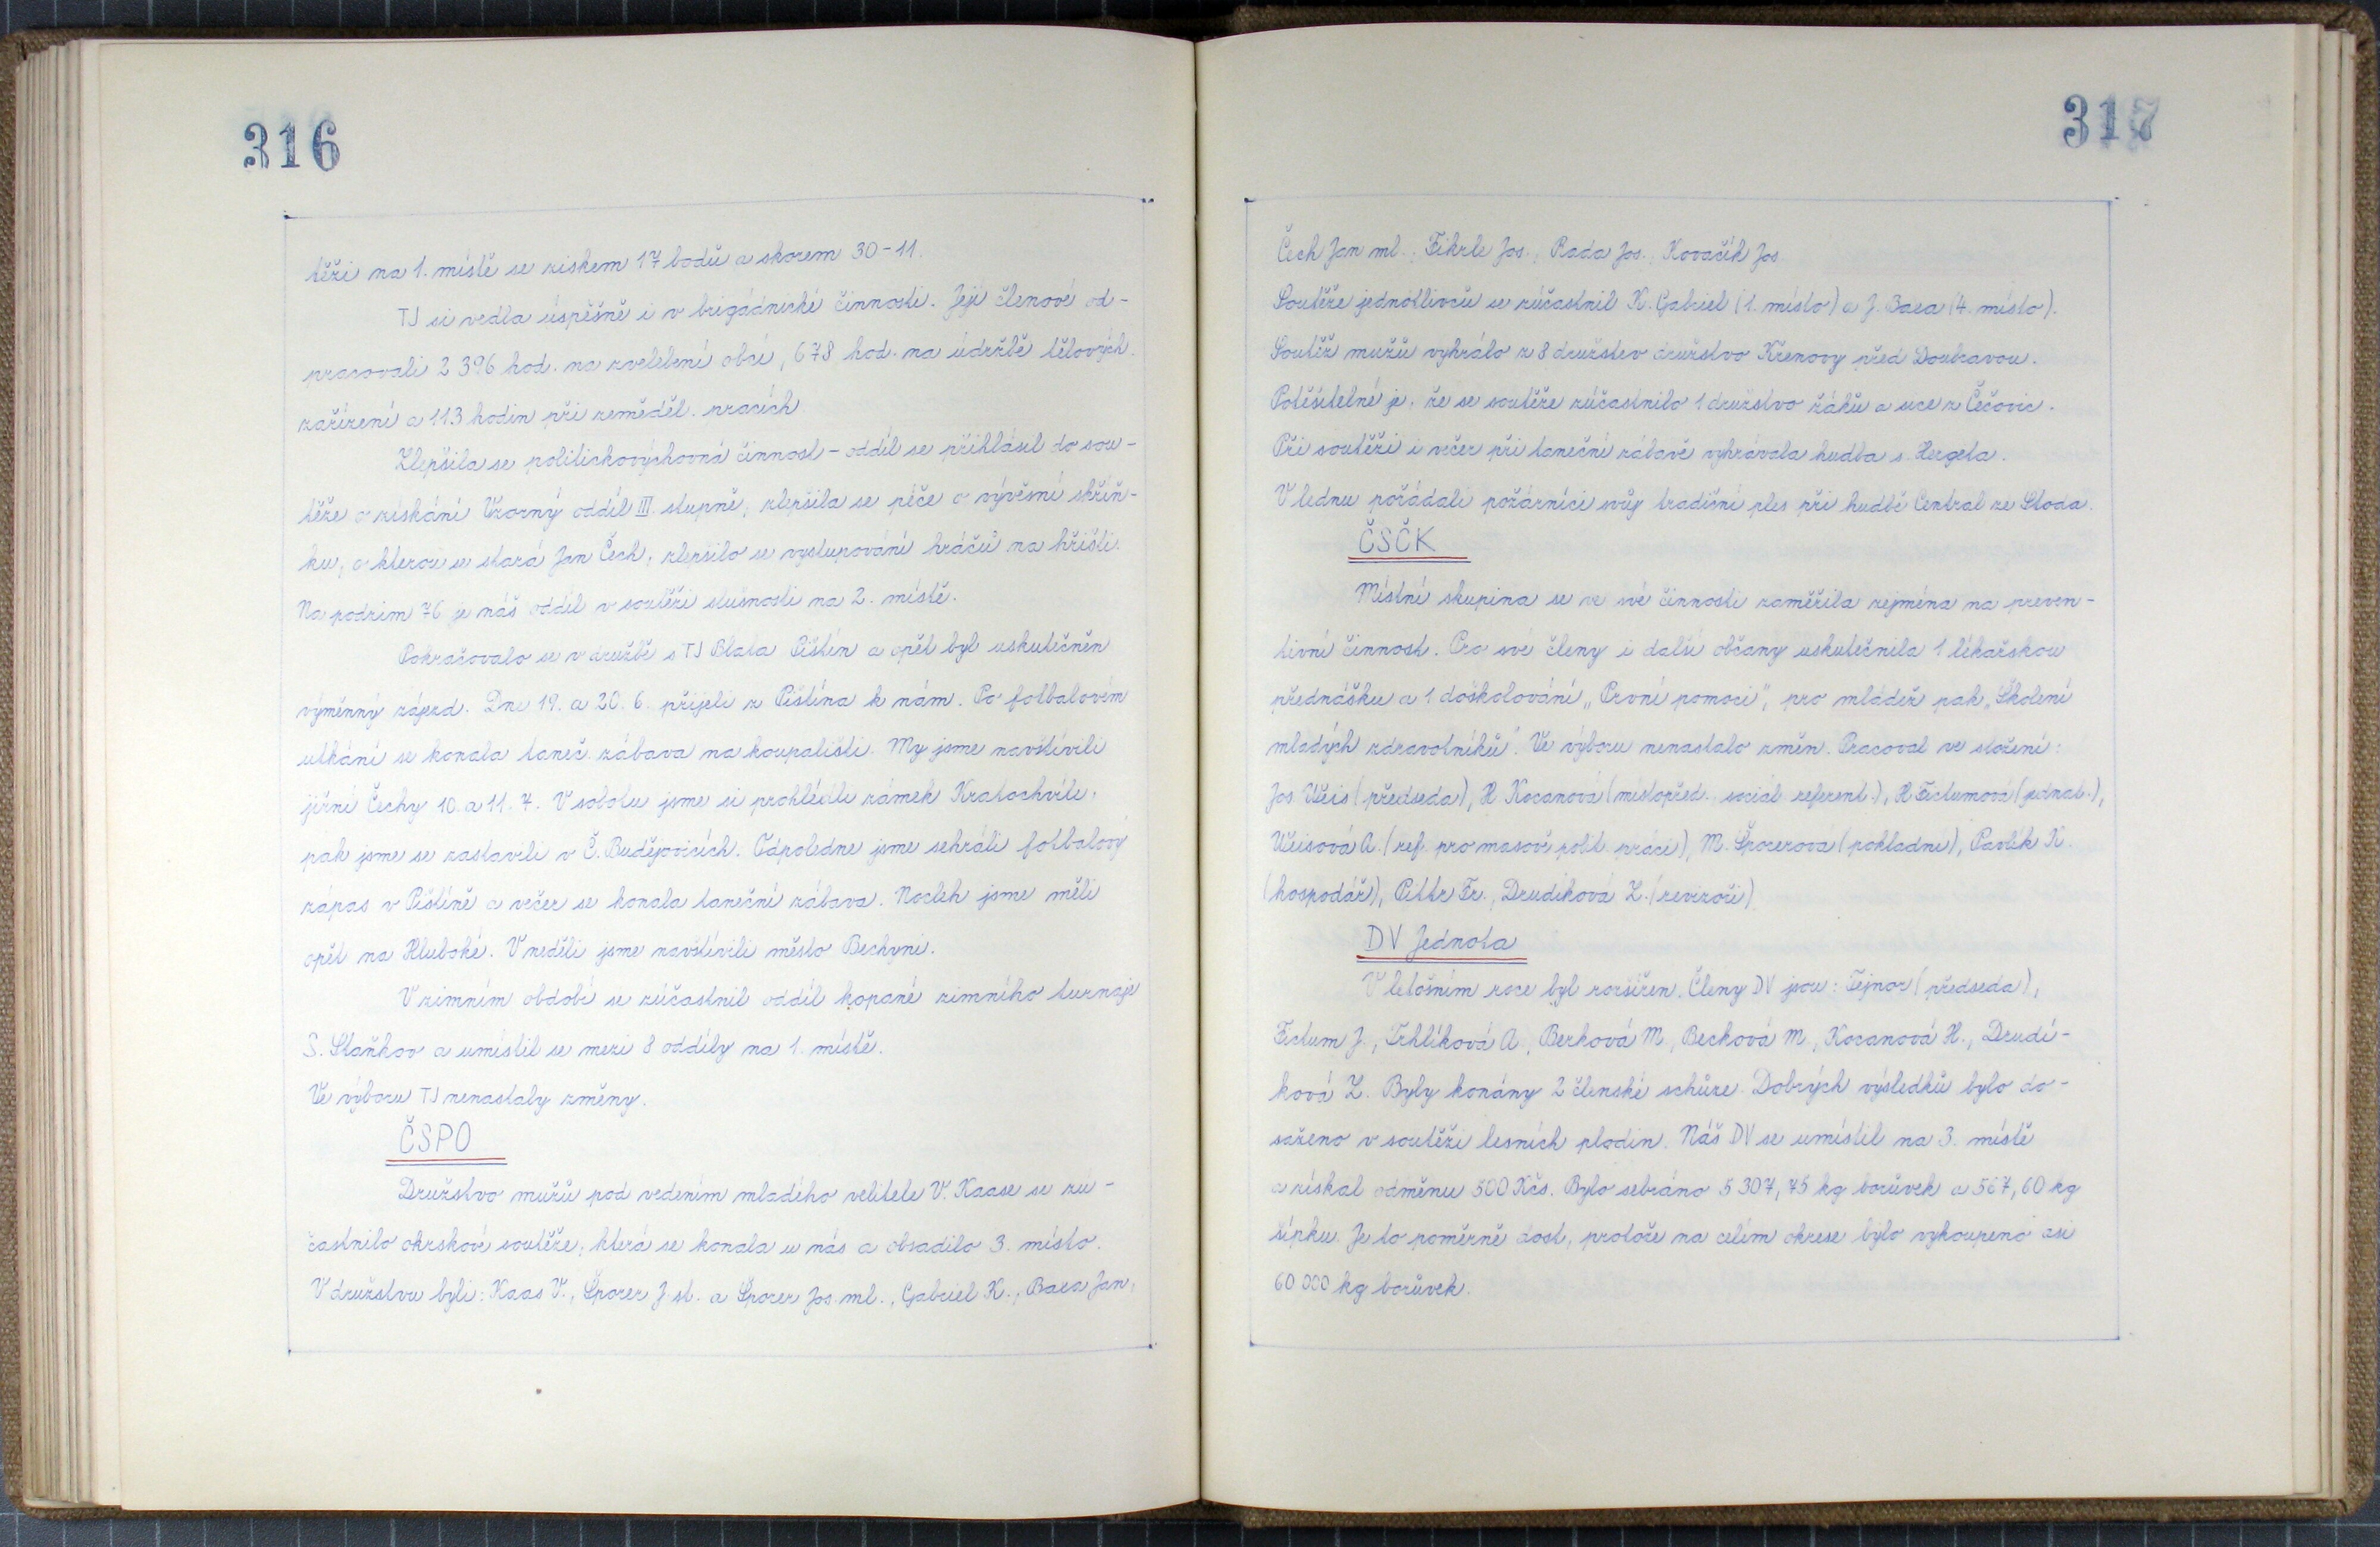 316
těži na 1. místě se ziskem 17 bodů a skorem 30-11.
TJ si vedla úspěšně i v brigádnické činnosti. Její členové od-
pracovali 2 396 hod. na zvelebení obcí, 678 hod. na údržbě tělových.
zařízení a 113 hodin při zeměděl. pracích
Zlepšila se politickovýchovná činnost - oddíl se přihlásil do sou-
těže o získání Vzorný oddíl III. stupně, zlepšila se péče o vývěsní skříň-
ku, o kterou se stará Jan Čech, zlepšilo se vystupování hráčů na hřišti.
Na podzim 76 je náš oddíl v soutěži slušnosti na 2. místě.
Pokračovalo se v družbě s TJ Blata Pištín a opět byl uskutečněn
výměnný zájezd. Dne 19. a 20. 6. přijeli z Pištína k nám. Po fotbalovém
utkání se konala taneč. zábava na koupališti. My jsme navštívili
jižní Čechy 10. a 11. 7. V sobotu jsme si prohlédli zámek Kratochvíle,
pak jsme se zastavili v Č. Budějovicích. Odpoledne jsme sehráli fotbalový
zápas v Pištíně a večer se konala taneční zábava. Nocleh jsme měli
opět na Hluboké. V neděli jsme navštívili město Bechyni.
V zimním období se zúčastnil oddíl kopané zimního turnaje
S. Staňkov a umístil se mezi 8 oddíly na 1. místě.
Ve výboru TJ nenastaly změny.
ČSPO
Družstvo mužů pod vedením mladého velitele V. Kaase se zú-
častnilo okrskové soutěže, která se konala u nás a obsadilo 3. místo.
V družstvu byli: Kaas V., Šporer J. st. a Šporer Jos. ml., Gabriel K., Baxa Jan,
317
Čech Jan ml., Fikrle Jos., Rada Jos., Kovačík Jos
Soutěže jednotlivců se zúčastnil K. Gabriel (1. místo) a J. Baxa (4. místo).
Soutěž mužů vyhrálo z 8 družstev družstvo Křenovy před Doubravou.
Potěšitelné je, že se soutěže zúčastnilo 1 družstvo žáků a sice z Čečovic.
Při soutěži i večer při taneční zábavě vyhrávala hudba s. Hergeta.
V lednu pořádali požárníci svůj tradiční ples při hudbě Central ze Stoda.
ČSČK
Místní skupina se ve své činnosti zaměřila zejména na preven-
tivní činnost. Pro své členy i další občany uskutečnila 1 lékařskou
přednášku a 1 doškolování „První pomoci", pro mládež pak „Školení
mladých zdravotníků". Ve výboru nenastalo změn. Pracoval ve složení:
Jos. Weis (předseda), H. Kocanová (místopřed., sociál. referent.), H. Fictumová (jednat.),
Weisová A. (ref. pro masově polit. práci), M. Šporerova (pokladní), Pavlík K.
(hospodář), Pittr Fr., Drudíková Z. (revizoři)
DV Jednota
V letošním roce byl rozšířen. Členy DV jsou: Tejnor (předseda),
Fictum J., Trhlíková A., Berková M., Becková M., Kocanová H., Drudí-
ková Z. Byly konány 2 členské schůze. Dobrých výsledků bylo do-
saženo v soutěži lesních plodin. Náš DV se umístil na 3. místě
a získal odměnu 500 Kčs. Bylo sebráno 5 307,75 kg borůvek a 567,60 kg
šípku. Je to poměrně dost, protože na celém okrese bylo vykoupeno asi
60 000 kg borůvek.